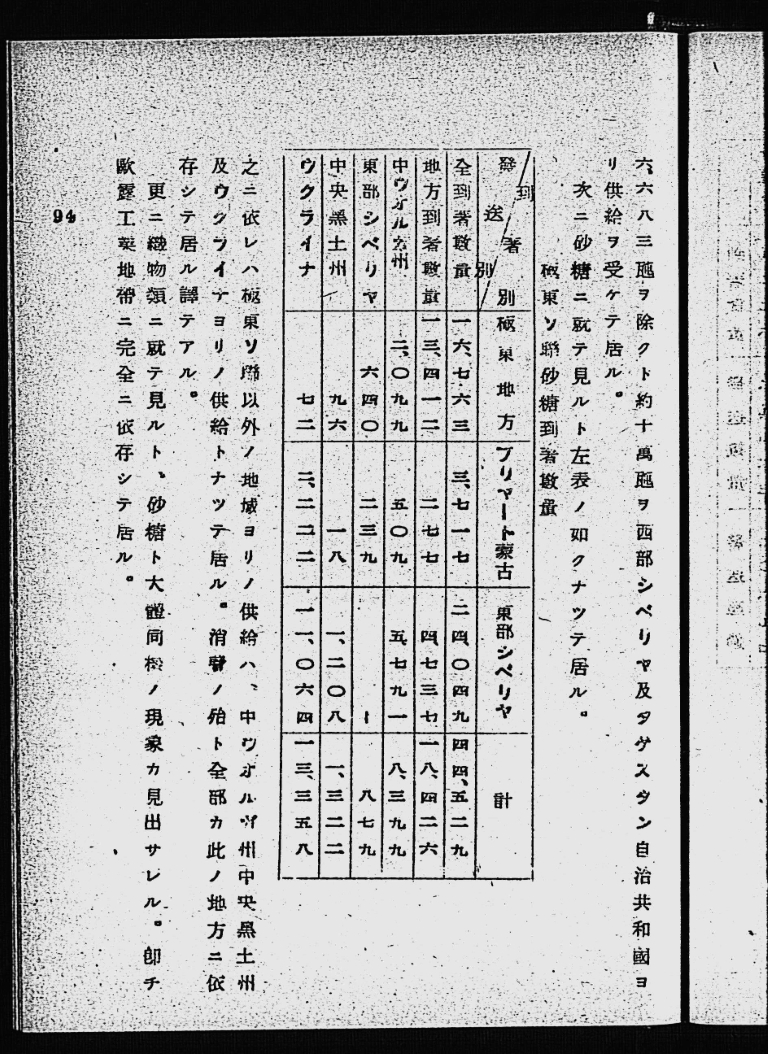 六、六八三瓲ヲ除クト約十萬瓲ヲ西部シベリヤ及タゲスタン自治共和國ヨ
リ供給ヲ受ケテ居ル。
次ニ砂糖ニ就テ見ルト左表ノ如クナツテ居ル。
極東ソ聯砂糖到着數量
發送別 到着別 極東地方 ブリヤート蒙古 東部シベリヤ 計
全到着數量 一六、七六三 三、七一七 二四、〇四九 四四、五二九
地方到着數量 一三、四一二 二七七 四、七三七 一八、四二六
中ヴオルガ州 二、〇九九 五〇九 五、七九一 八、三九九
東部シベリヤ 六四〇 二三九 ー 八七九
中央黑土州 九六 一八 一、二〇八 一、三二二
ウクライナ 七二 二、二二二 一一、〇六四 一三、三五八
之ニ依レハ極東ソ聯以外ノ地域ヨリノ供給ハ、中ヴオルガ州中央黑土州
及ウクライナヨリノ供給トナツテ居ル。消費ノ殆ト全部カ此ノ地方ニ依
存シテ居ル譯テアル。
更ニ織物類ニ就テ見ルト、砂糖ト大體同樣ノ現象カ見出サレル。卽チ
歐露工業地帶ニ完全ニ依存シテ居ル。
94